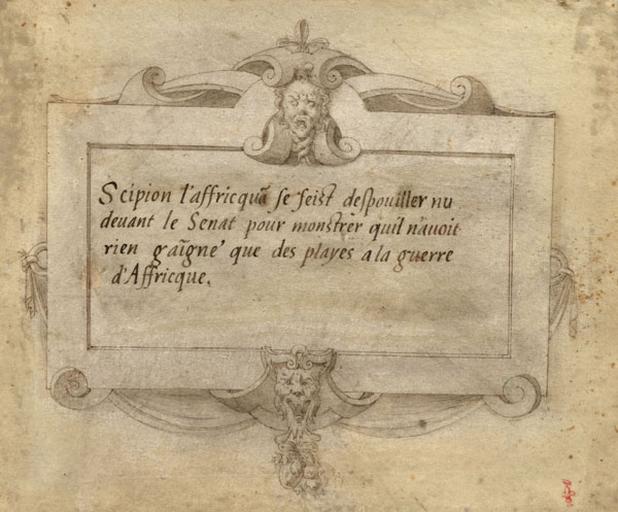 Scipion l'affricquã se feist despouiller nu
deuant le Senat pour monstrer quil n'auoit
rien gaĩgne' que des playes a la guerre
d'Affricque.